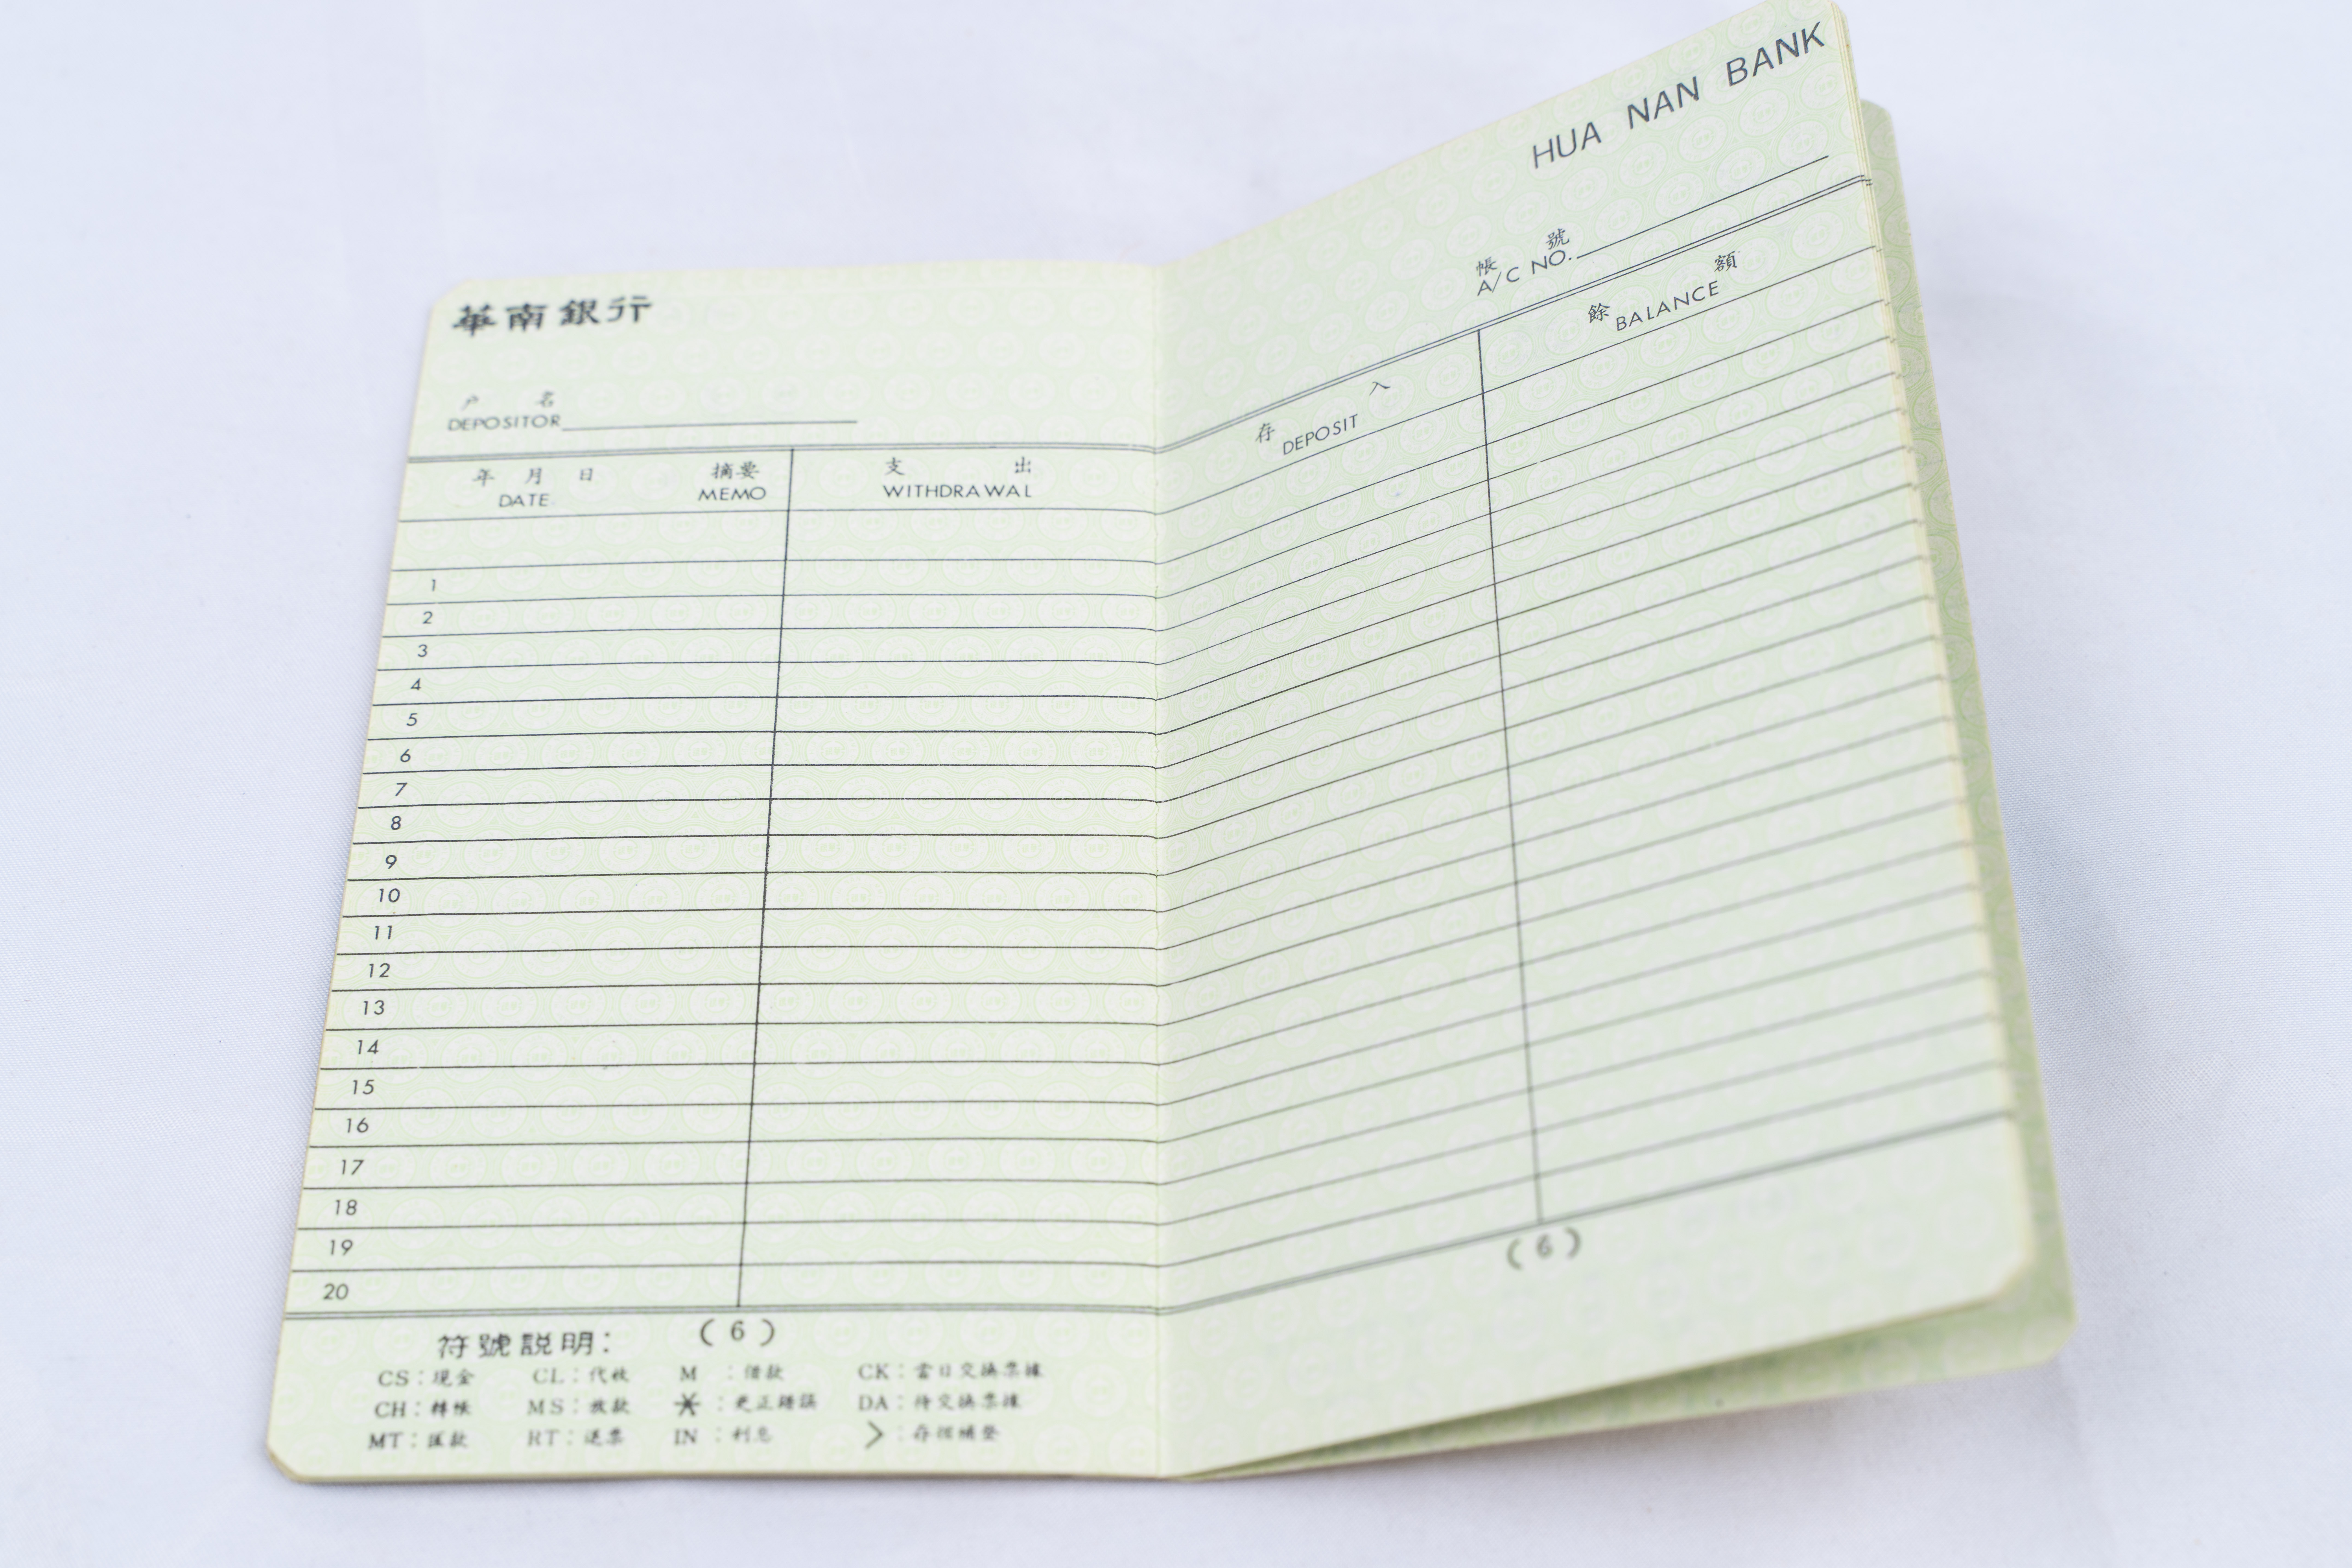 華南銀行
戶 名
DEPOSITOR
年 月 日 摘要 支 出
DATE MEMO WITHDRAWAL
1
2
3
4
5
6
7
8
9
10
11
12
13
14
15
16
17
18
19
20
( 6 )
符號説明：
CS：現金 CL：代收 M ：借款 CK：當日交換票據
CH：轉帳 MS：放款 ＊：更正錯誤 DA：待交換票據
MT：匯款 RT：退票 IN ：利息 ＞：存摺補登
HUA NAN BANK
帳 號
A/C NO.
存 入 餘 額
DEPOSIT BALANCE
( 6 )